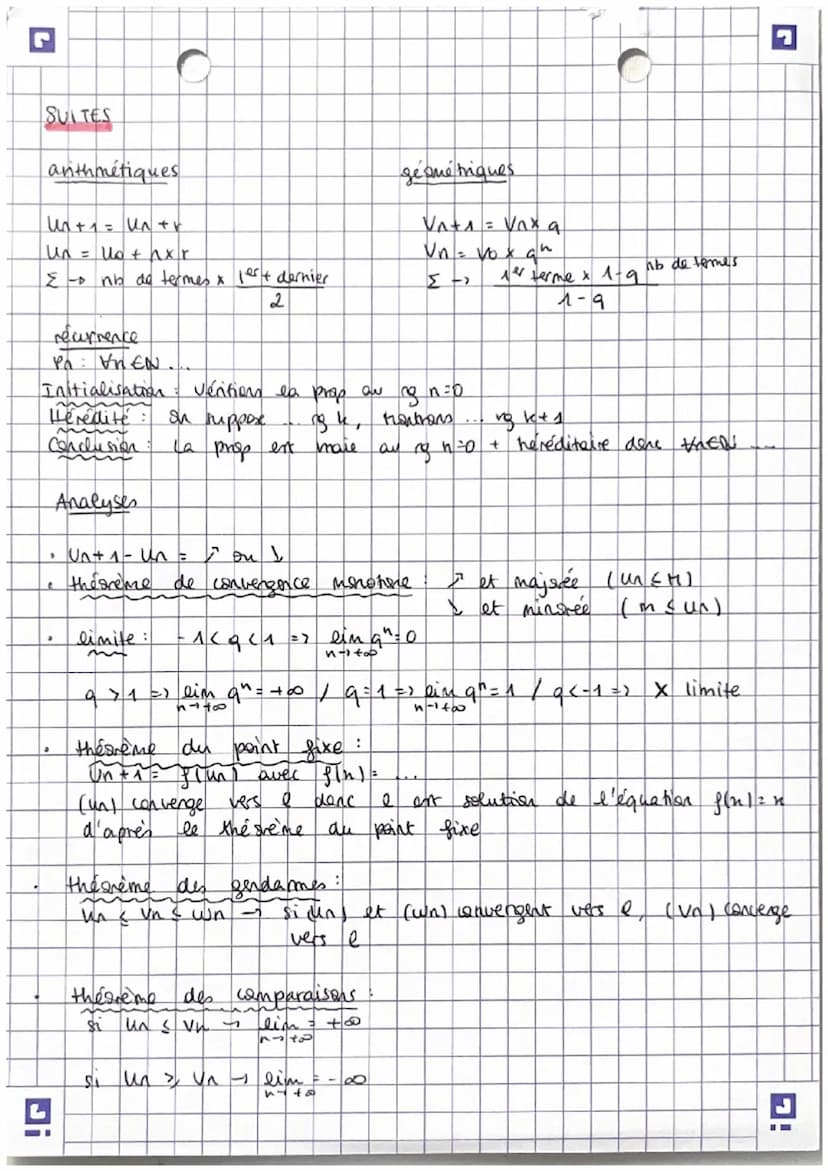 SUITES
arithmétiques
géométriques
Un+1 = Un + r
Un = U0 + n×r
Σ → nb de termes × 1er + dernier
2
Vn+1 = Vn × q
Vn = V0 × qⁿ
Σ → 1er terme × 1-q nb de termes
1-q
récurrence
Pn : ∀n∈ℕ ...
Initialisation : Vérifions la prop au rg n=0
Hérédité : On suppose ... rg k, montrons ... rg k+1
Conclusion : La prop est vraie au rg n=0 + héréditaire donc ∀n∈ℕ ...
Analyses
• Un+1 - Un = ↗ ou ↘
• théorème de convergence monotone : ↗ et majorée (Un ≤ M)
↘ et minorée (m ≤ Un)
• limite : -1<q<1 => lim qⁿ = 0
n→+∞
q > 1 => lim qⁿ = +∞ / q=1 => lim qⁿ = 1 / q<-1 => X limite
n→+∞ n→+∞
• théorème du point fixe :
Un+1 = f(Un) avec f(x) = ...
(Un) converge vers l donc l est solution de l'équation f(x) = x
d'après le théorème du point fixe
• théorème des gendarmes :
Un ≤ Vn ≤ Wn → si (Un) et (Wn) convergent vers l, (Vn) converge
vers l
• théorème des comparaisons :
si Un ≤ Vn → lim = +∞
n→+∞
si Un ≥ Vn → lim = -∞
n→+∞